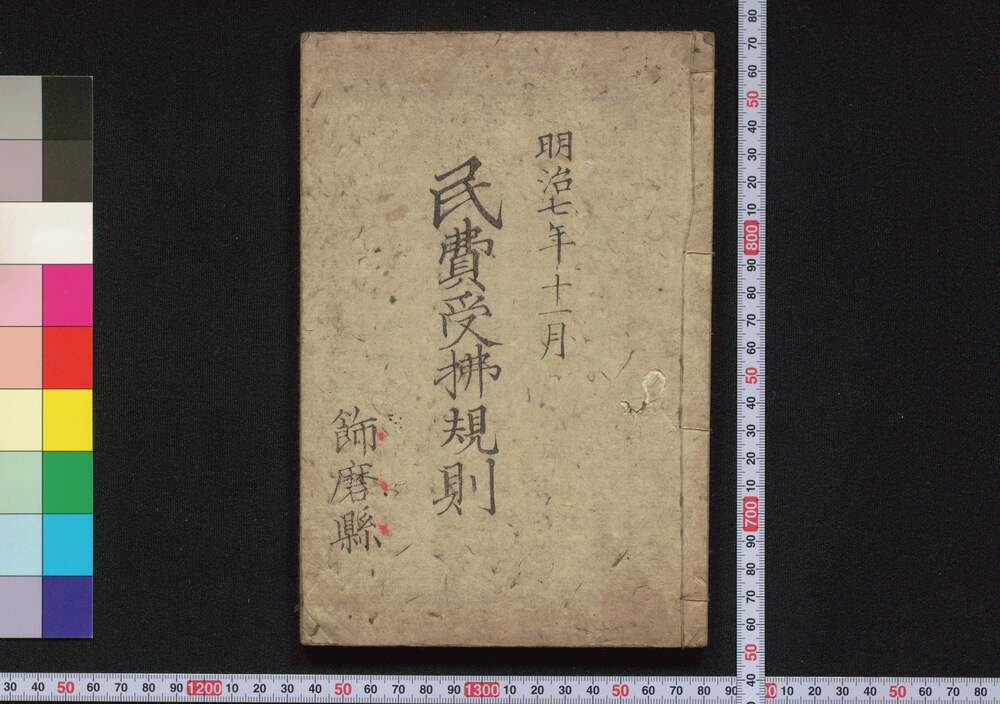 明治七年十一月
民費受拂規則
飾磨縣
80
70
60
50
40
30
20
10
800
90
80
70
60
50
40
30
20
10
700
90
80
70
60
50
40
30 40 50 60 70 80 90 1200 10 20 30 40 50 60 70 80 90 1300 10 20 30 40 50 60 70 80 90 10 20 30 40 50 60 70 80